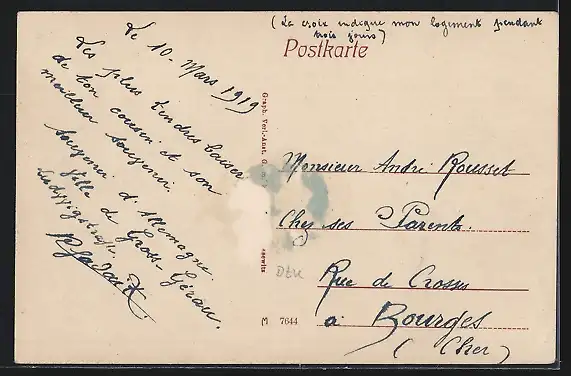 (La croix indique mon logement pendant
trois jours)
Postkarte
Le 10 - Mars 1919
Les plus tendres baiser
de ton cousin et son
meilleur souvenir.
Souvenir d'Allemagne.
Ville de Gross-Gérau.
Ludwigstrasse
Graph. Verl.-Anst. G.
Monsieur André Rousset
Chez ses Parents.
Rue de Crosses
à Bourges
(Cher)
M 7644